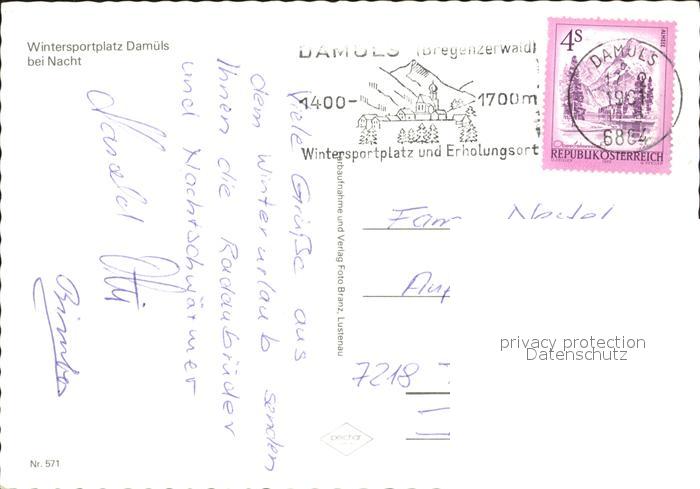 Wintersportplatz Damüls
bei Nacht
DAMÜLS (Bregenzerwald)
1400- 1700m
Wintersportplatz und Erholungsort
4s
ALMSEE
REPUBLIK ÖSTERREICH
DAMÜLS
6884
Viele Grüße aus
dem Winterurlaub senden
Ihnen die Radaubrüder
und Nachtschwärmer
Harald
Otti
Fam
7218
Farbaufnahme und Verlag Foto Branz, Lustenau
privacy protection
Datenschutz
Nr. 571